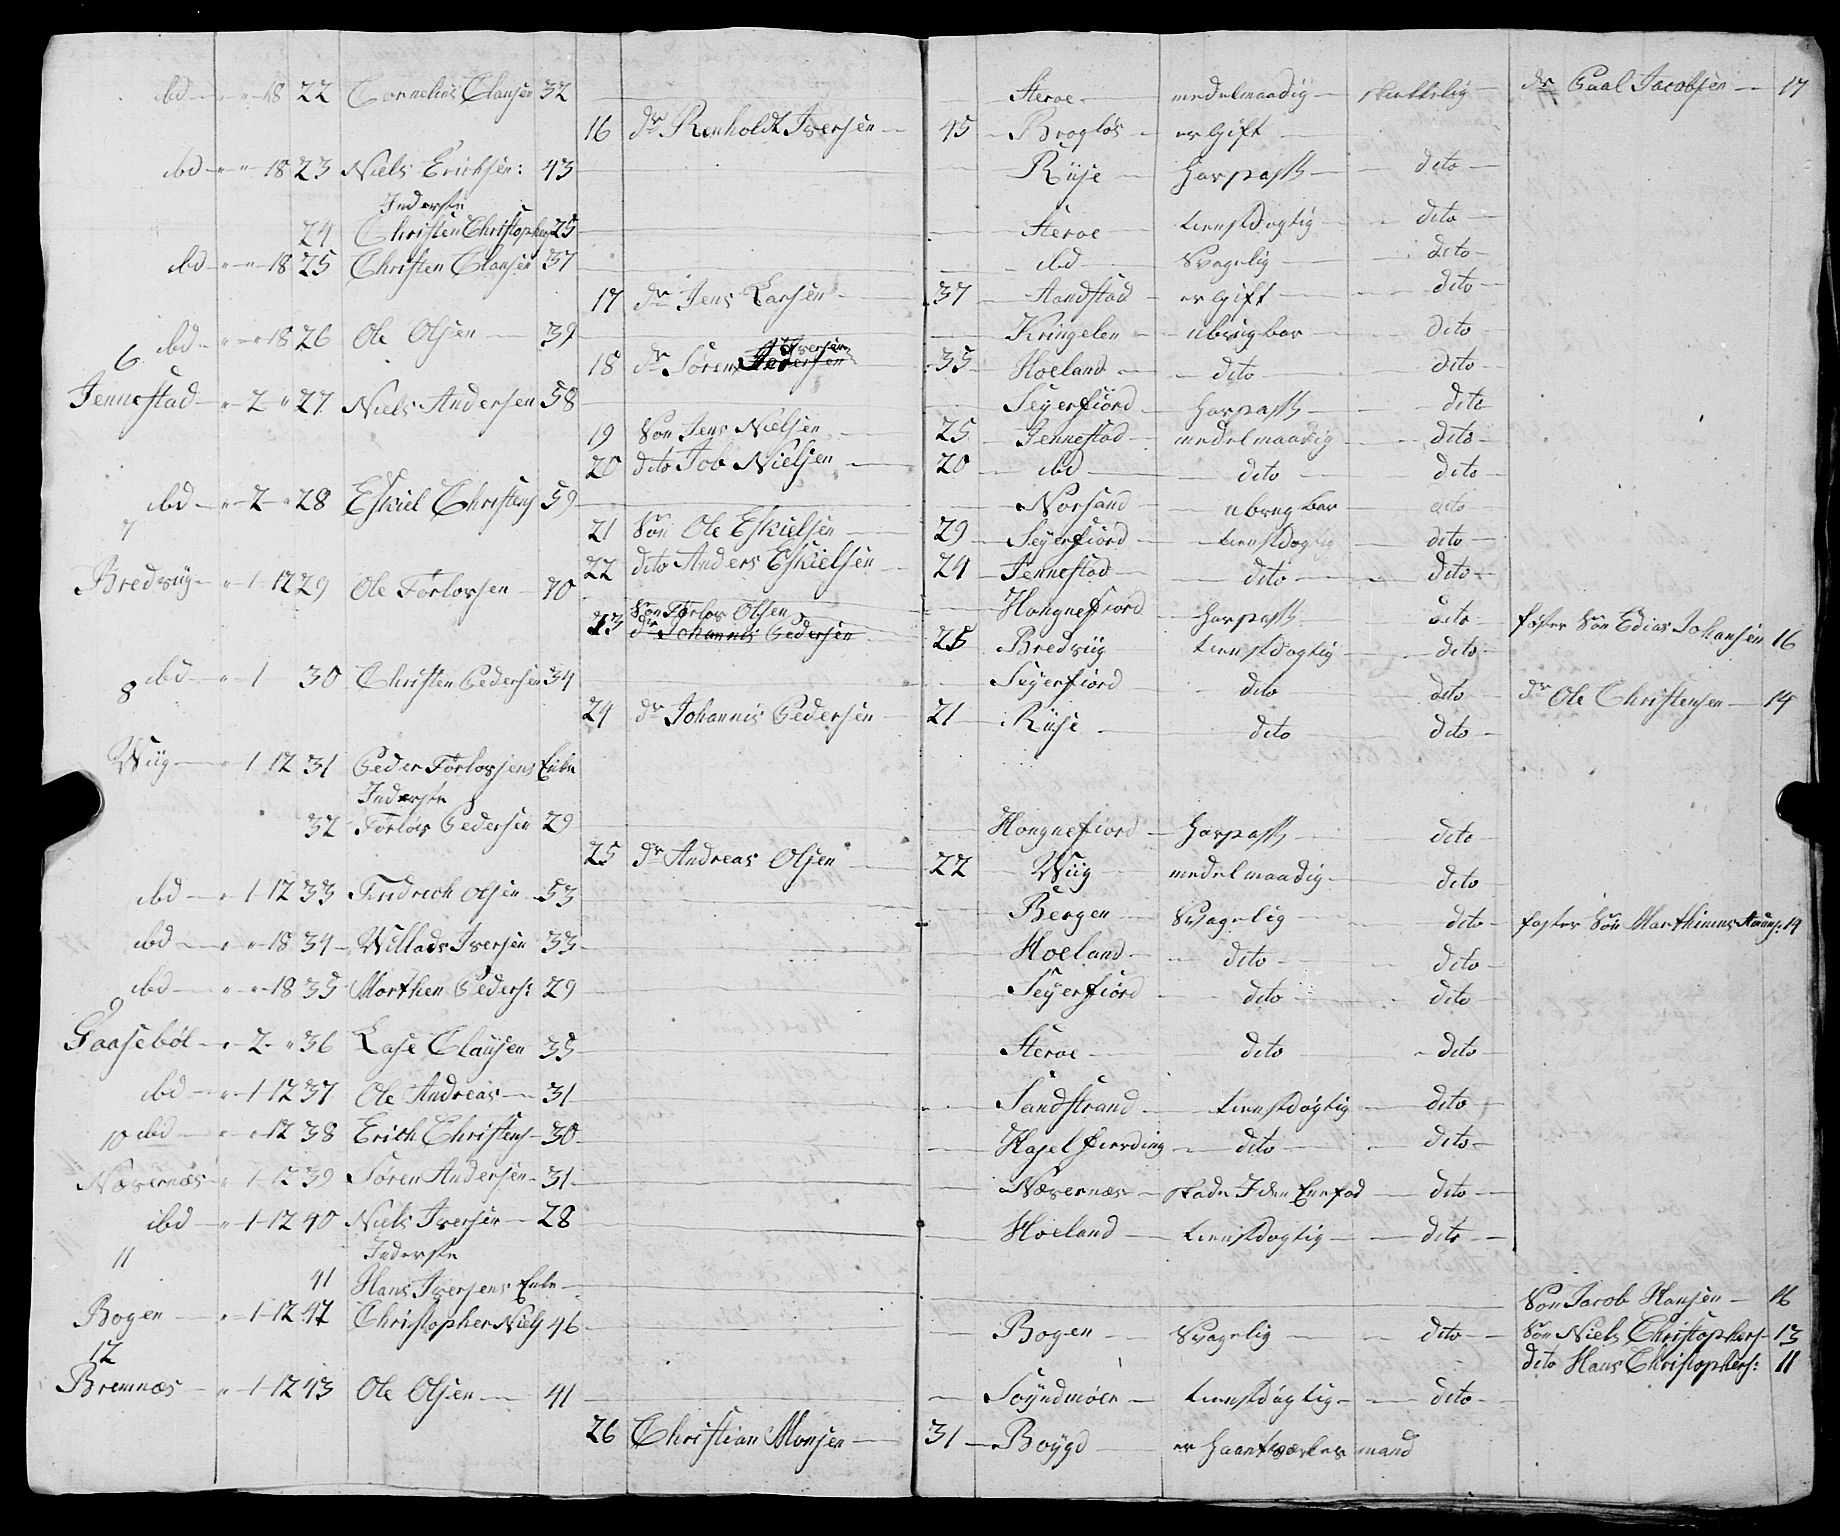 ibd — " — " — 18 22 Cornelius Clausen 32 — Steroe — medelmaadig — skikkelig — dr Paal Jacobsen — 17
16 dr Renholdt Iversen — 45 — Brogløs — er Gift —
ibd — " — " — 18 23 Niels Erichsen: 43 — Riise — har pass — dito —
Inderste
24 Christen Christophers 25 — Steroe — tienstdygtig — dito —
ibd — " — " — 18 25 Christen Clausen 37 — ibd — Svagelig — dito —
17 dr Jens Larsen — 37 — Sandstad — er Gift — dito —
ibd — " — " 18 26 Ole Olsen — 39 — Kringelen — ubrugbar — dito —
6
18 dr Søren Iversen — 35 — Hoeland — dito — dito —
Jennestad — " — 2 — " 27 Niels Andersen 58 — Seyerfiord — har pass — dito
19 Søn Jens Nielsen — 25 — Jennestad — medelmaadig — dito —
20 dito Job Nielsen — 20 — ibd — dito — dito
ibd — " — 2 — " 28 Eskiel Christens 59 — Norsand — ubrugbar — dito —
7
21 Søn Ole Eskielsen — 29 — Seyerfiord — tienstdygtig — dito —
22 dito Anders Eskielsen — 24 — Jennestad — dito — dito —
Bredviig — " — 1 — 12 29 Ole Torlovsen — 70 — Hongnefiord — har pass — dito — foster Søn Edias Johansen 16
23 Søn Torlov Olsen
dr Johannis Pedersen — 25 — Bredviig — tienstdygtig — dito —
ibd — " — 1 30 Christen Pedersen 34 — Seyerfiord — dito — dito — dr Ole Christensen — 14
8
24 dr Johannis Pedersen — 21 — Riise — dito — dito —
Wiig — " — 1 — 12 31 Peder Torlovsens Enke
Inderste
32 Torlov Pedersen 29 — Hongnefiord — har pass — dito —
25 dr Andreas Olsen — 22 — Wiig — medelmaadig — dito —
ibd — " — 1 — 12 33 Fridrech Olsen — 53 — Bergen — Svagelig — dito — foster Søn Marthinus 14
ibd — " — " — 18 34 — Willads Iversen 33 — Hoeland — dito — dito —
ibd — " — " — 18 35 Morthen Peders: 29 — Seyerfiord — dito — dito —
9
Gaasebøl — " — 2 — " 36 Lase Clausen 35 — Steroe — dito — dito —
ibd — " — 1 — 12 37 Ole Andreas — 31 — Sandstrand — tienstdygtig — dito —
10 ibd — " — " — 12 38 Erich Christens — 30 — Hasel fierding — dito — dito —
Nævernæs — " — 1 — 12 39 Søren Andersen — 31 — Nævernæs — skade I den Ene fod — dito —
ibd — " — 1 — 12 40 Niels Iversen — 28 — Hoeland — tienstdygtig — dito —
11 Inderste
41 Hans Iversens Enke — Søn Jacob Hansen — 16
Bogen — " — 1 — 12 42 Christopher Niels 46 — Bogen — Svagelig — dito — Søn Niels Christophers — 13
12 dito Hans Christophers: 11
Bremnæs — " — 1 — 12 43 Ole Olsen — 41 — Søyndmøer — tienstdygtig — dito —
26 Christian Monsen — 31 — Boygd — er Haantværkes mand